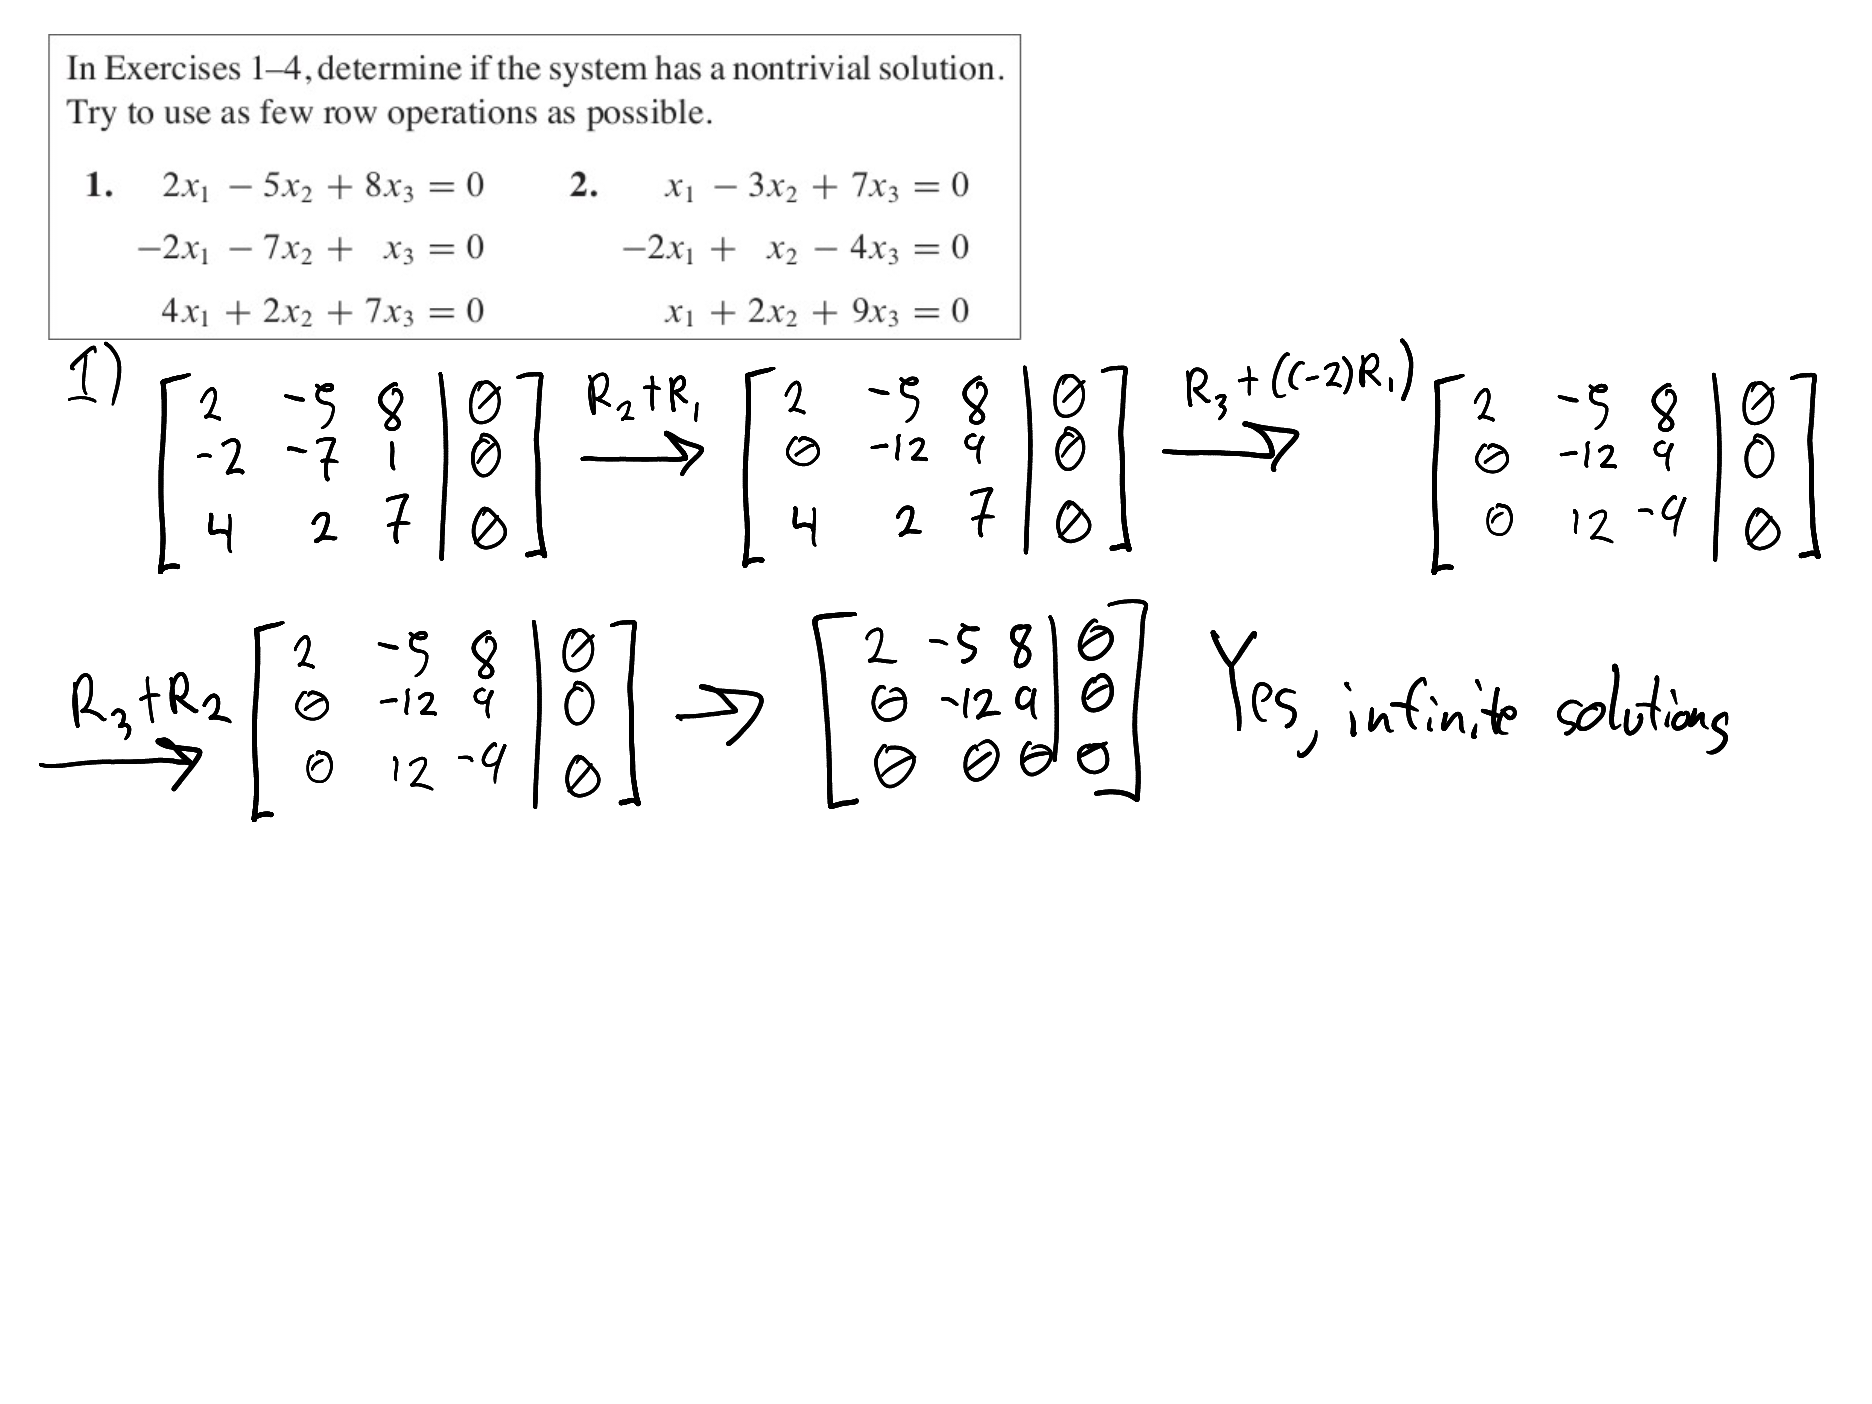 In Exercises 1–4, determine if the system has a nontrivial solution.
Try to use as few row operations as possible.
1. 2x₁ − 5x₂ + 8x₃ = 0 2. x₁ − 3x₂ + 7x₃ = 0
−2x₁ − 7x₂ + x₃ = 0 −2x₁ + x₂ − 4x₃ = 0
4x₁ + 2x₂ + 7x₃ = 0 x₁ + 2x₂ + 9x₃ = 0
1)
[2 -5 8 | 0]
[-2 -7 1 | 0]
[4 2 7 | 0]
R₂+R₁ →
[2 -5 8 | 0]
[0 -12 9 | 0]
[4 2 7 | 0]
R₃+((-2)R₁) →
[2 -5 8 | 0]
[0 -12 9 | 0]
[0 12 -9 | 0]
R₃+R2 →
[2 -5 8 | 0]
[0 -12 9 | 0]
[0 12 -9 | 0]
→
[2 -5 8 | 0]
[0 -12 9 | 0]
[0 0 0 | 0]
Yes, infinite solutions